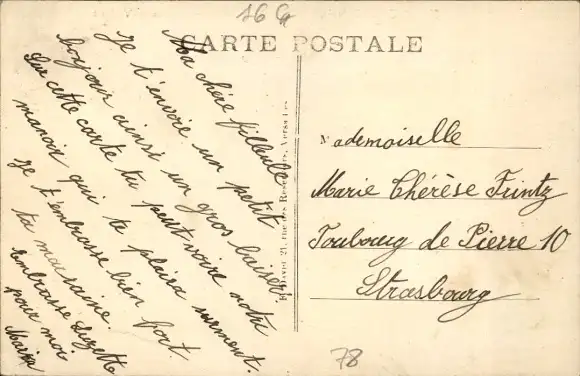 16 G
CARTE POSTALE
Ma chére filleulle
Je t'envoie un petit
bonjour ainsi un gros baiser
Sur cette carte tu peut voire notre
manoir qui te plaira surment.
Je t'embrasse bien fort
ta maraine.
embrasse Suzette
pour moi
Mademoiselle
Marie Thérèse Frintz
Foubourg de Pierre 10
Strasbourg
78